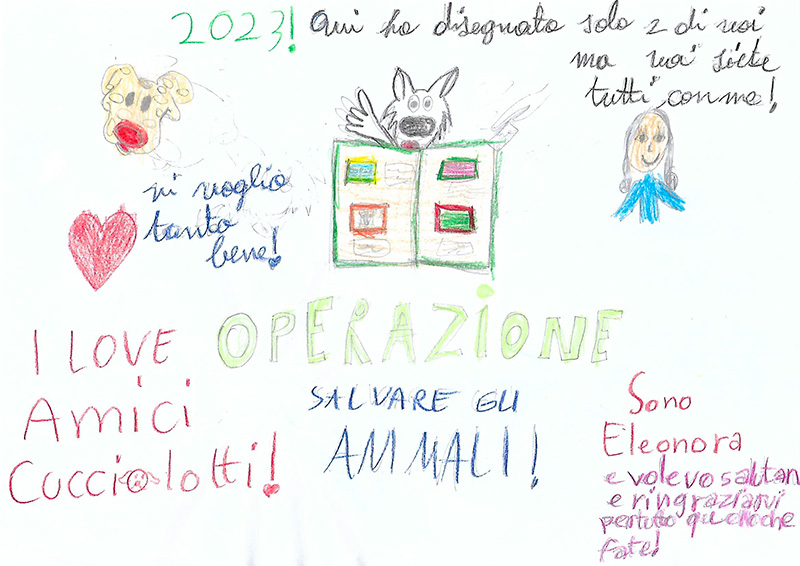 2023! Qui ho disegnato solo 2 di voi
ma voi siete
tutti con me!
vi voglio
tanto
bene!
OPERAZIONE
I LOVE
Amici
Cucciolotti!
SALVARE GLI
ANIMALI!
Sono
Eleonora
e volevo salutarvi
e ringraziarvi
per tutto quello che
fate!